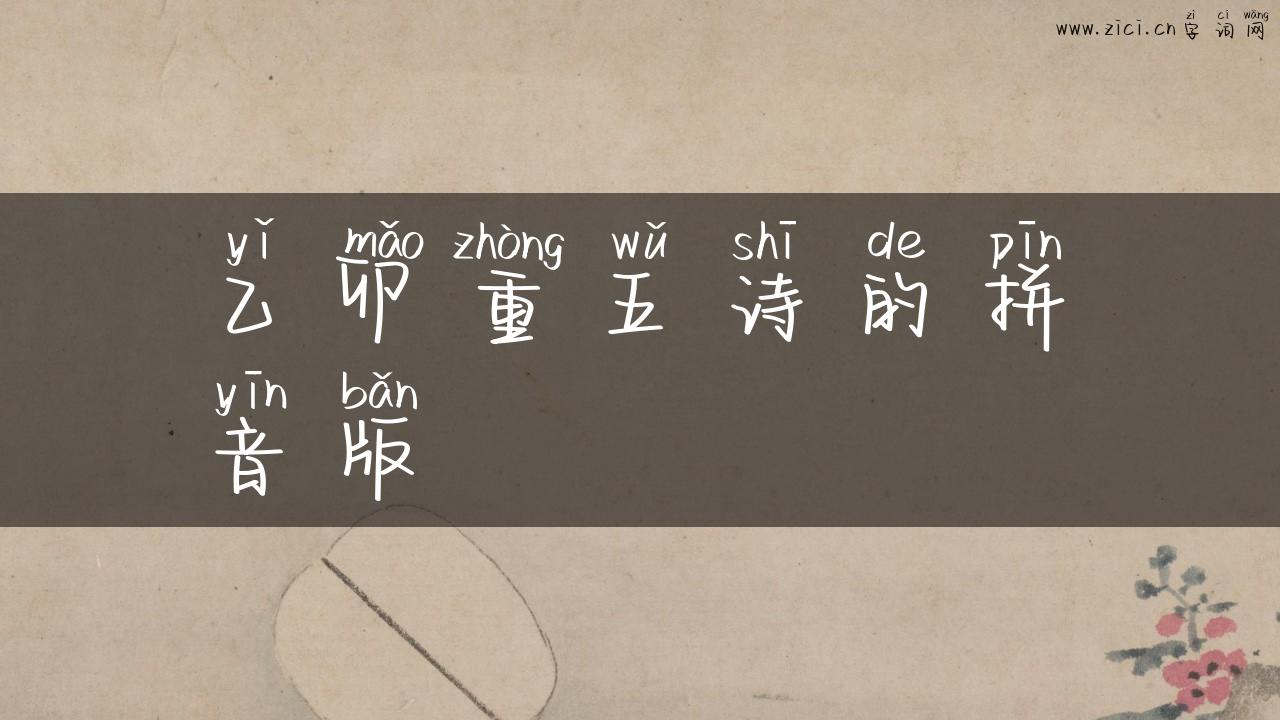 zì cí wǎng
www.zici.cn 字 词 网
yǐ mǎo zhòng wǔ shī de pīn
乙 卯 重 五 诗 的 拼
yīn bǎn
音 版